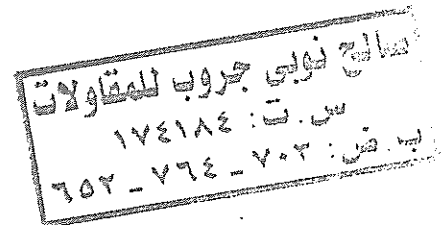 صالح نوبى جروب للمقاولات
س.ت: ١٧٤١٨٤
ب.ض: ٧٠٢ - ٧٦٤ - ٦٥٢